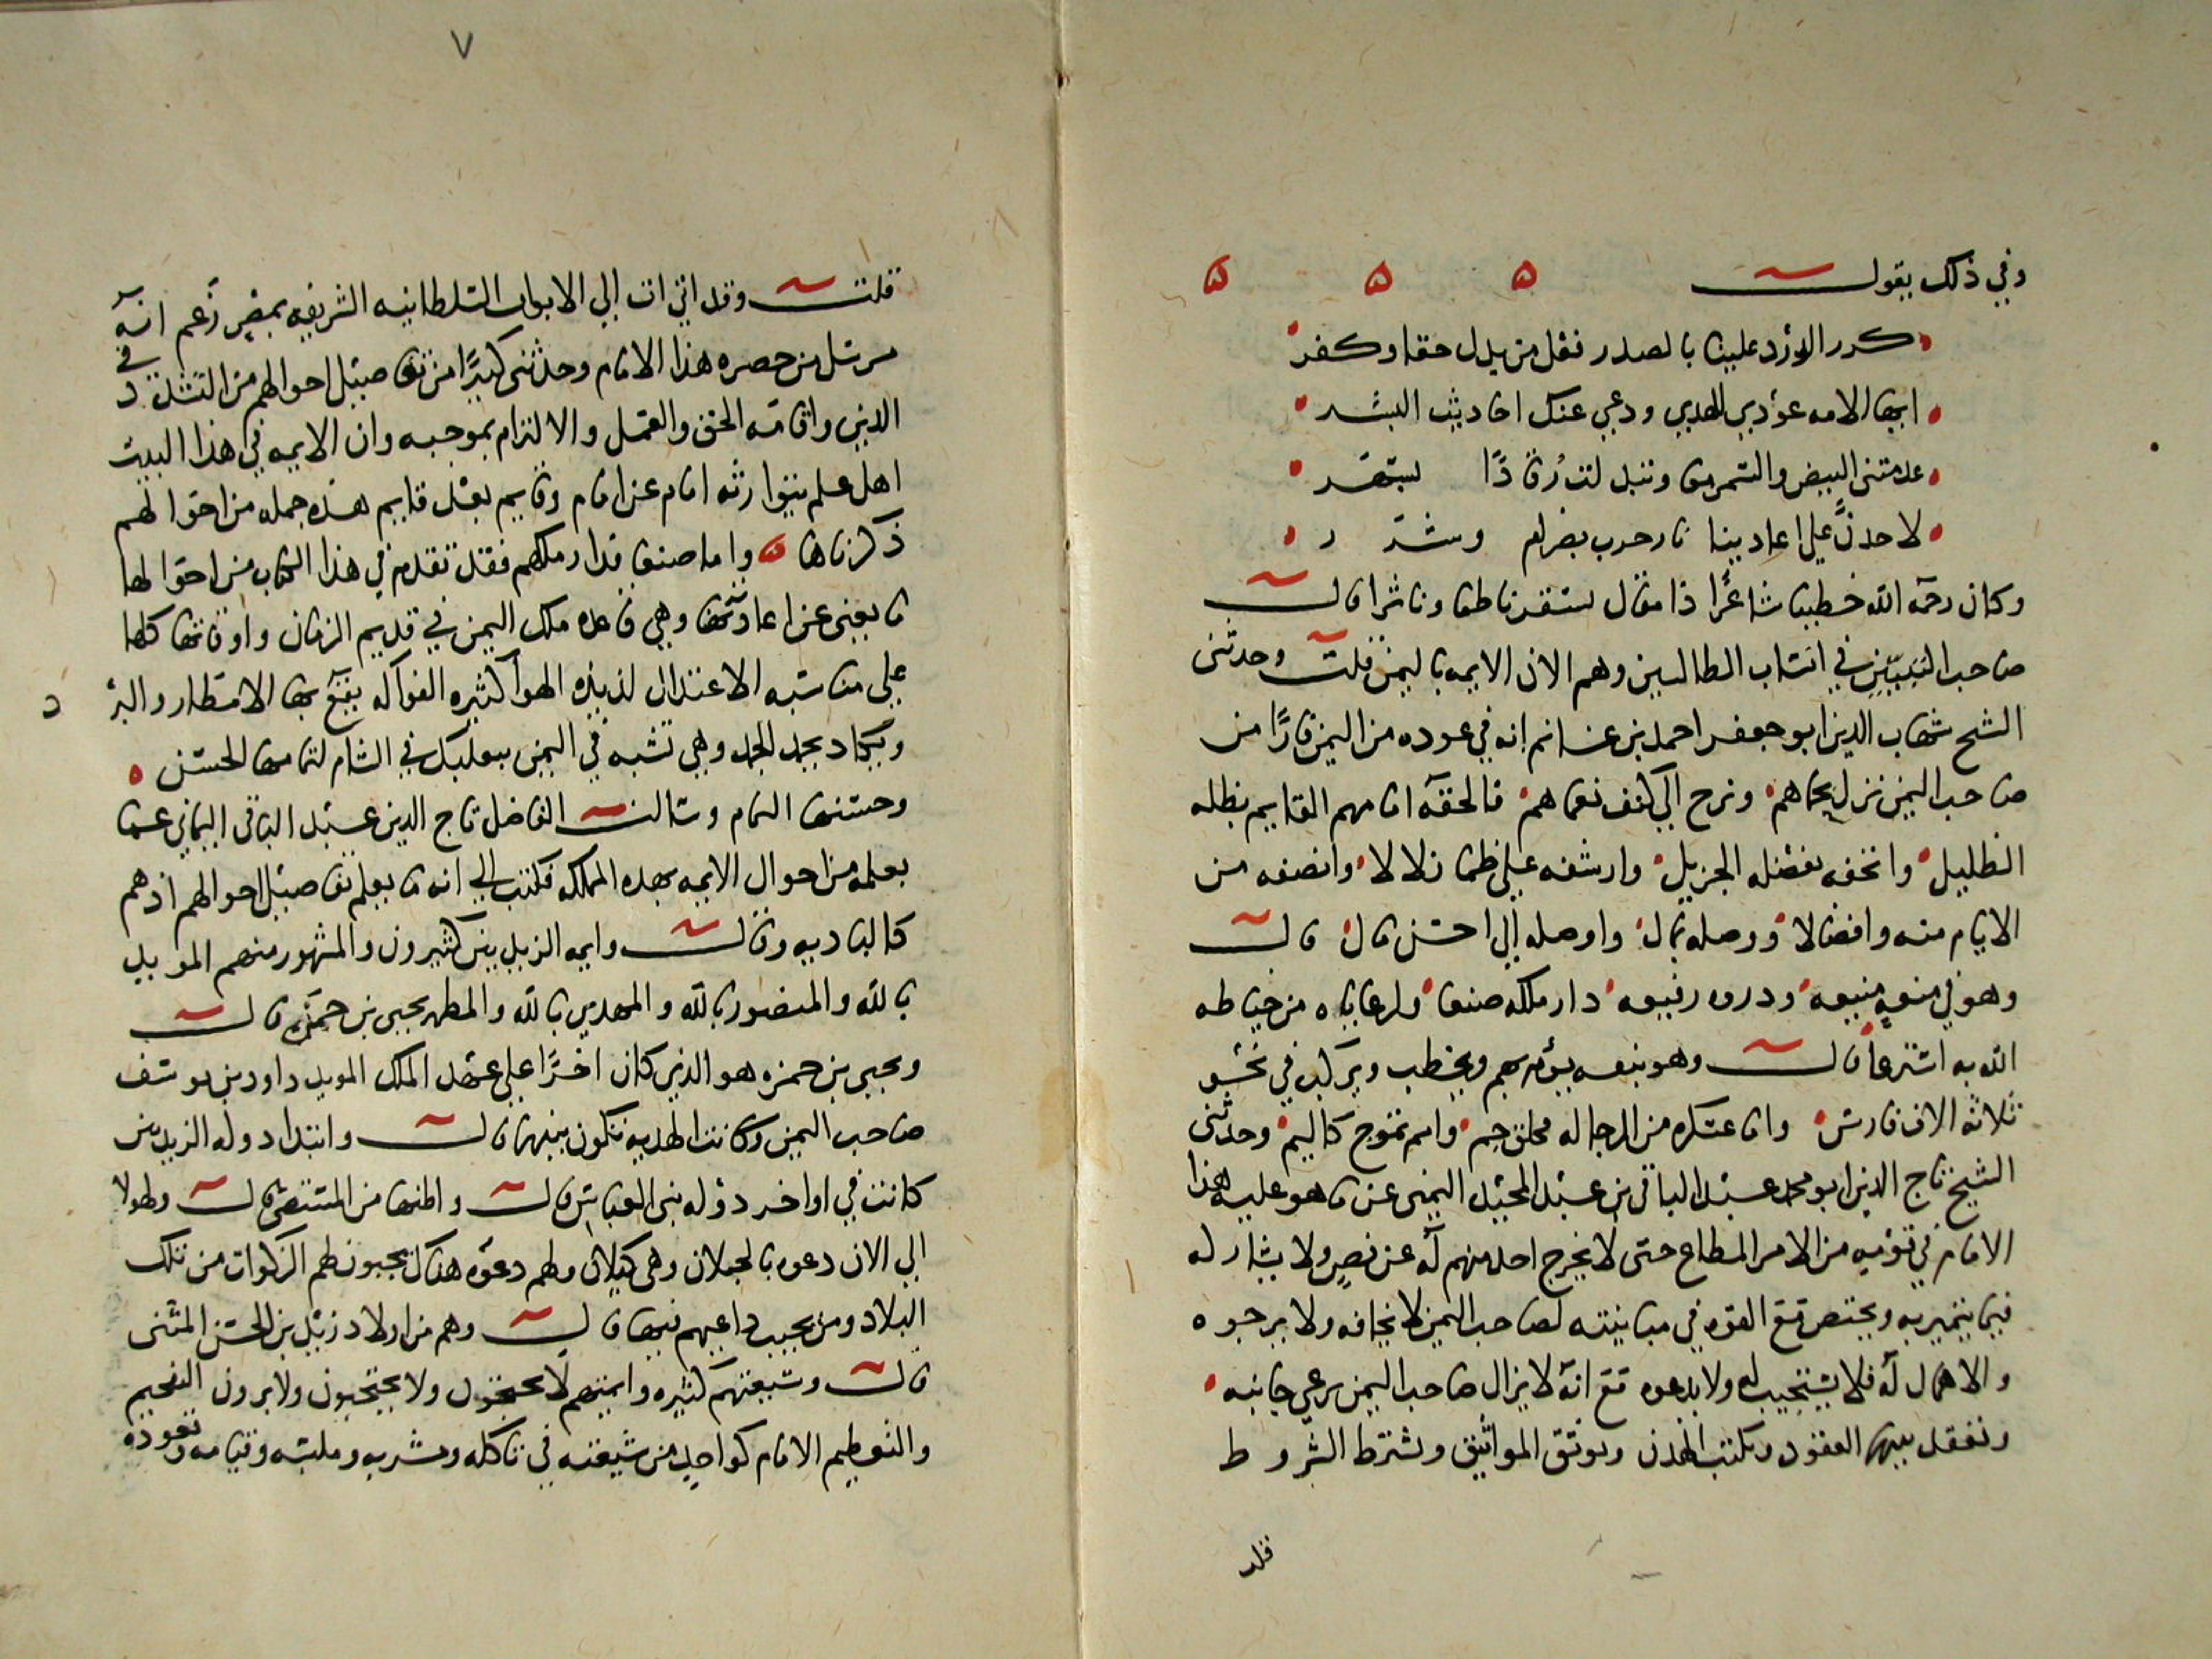 وفي ذلك يقول ه ه ه
كرر الورد علينا بالصدر فعل من بدل حقا وكفر
ايها الامه عودي للهدي ودعي عنك احاديث البشر
عدمتني البيض والسمر معا وتبدلت رقادًا بسهر
لاجدنَّ علي اعادينا نار حرب بضرام وشرر
وكان رحمه الله خطيبا شاعرًا ذا مقال ناظما وناثرا قال
صاحب في انساب الطالبين وهم الان الايمه باليمن قلت وحدثني
الشيخ شهاب الدين ابو جعفر احمد بن غانم انه في عوده من اليمن فارًا من
صاحب اليمن نزل بحماهم ونزح الي كنف نعماهم فالحقه امامهم القايم بظله
الظليل واتحفه بفضله الجزيل وارشفه علي ظما زلالا وانصفه من
الايام منه وافضالا ووصله بمال واوصله الي احسن مال قال
وهو في منعه منيعه وذروه رفيعه دار ملكه صنعا ولرعاياه من حياطه
الله به قال وهو بنفسه يؤم بهم ويخطب ويركب في نحو
ثلاثه الاف فارس واما عسكره من الرجاله فخلق جم وامم تموج كاليم وحدثني
الشيخ تاج الدين ابو محمد عبد الباقي بن عبد المجيد اليمني عن ما هو عليه هذا
الامام في قومه من الامر المطاع حتى لا يخرج احد منهم له عن نص ولا يشارك
فيما يتميز به ويختص مع القوه في مباينته لصاحب اليمن لا يخافه ولا يرجوه
والاهمال له فلا يستجيب له ولا يدعوه مع انه لا يزال صاحب اليمن يرعي جانبه
وتعقد بينهما العقود وتكتب الهدن وتوثق المواثيق وتشترط الشروط
قلت
٧
قلت وقد اتي ات الي الابواب السلطانيه الشريفه بمصر زعم انه
مرسل من حضره هذا الامام وحدثني كثيرًا من تفاصيل احوالهم من التشدد في
الدين واقامه الحق والعمل والالتزام بموجبه وان الايمه في هذا البيت
اهل علم يتوارثه امام عن امام وقايم بعد قايم هذه جمله من احوالهم
ذكرناها ه واما صنعا فدار ملكهم فقد تقدم في هذا الكتاب من احوالها
ما يغني عن اعادتها وهي قاعده ملك اليمن في قديم الزمان واوقاتها كلها
علي مناسبه الاعتدال لذيذه الهوا كثيره الفواكه يقع بها الامطار والبرد
ويكاد يجمد الجمد وهي تشبه في اليمن ببعلبك في الشام لتمامها الحسن ه
وحسنها التام وسالت الفاضل تاج الدين عبد الباقي اليماني عما
يعلمه من احوال الايمه بهذه المملكه فكتب الي انه ما يعلم تفاصيل احوالهم اذ هم
كالباديه وقال وايمه الزيديين كثيرون والمشهور منهم المويد
بالله والمنصور بالله والمهدي بالله والمطهر يحيي بن حمزه قال
ويحيي بن حمزه هو الذي كان اخرًا علي عهد الملك المويد داود بن يوسف
صاحب اليمن وكانت الهديه تكون بينهما قال وابتدا دوله الزيديين
كانت في اواخر دوله بني العباس قال واظنها من المستنصر قال ولهولا
الي الان دعوه بالجيلان وهي كيلان ولهم دعوه هناك يجبون لهم الزكوات من تلك
البلاد ومن يجيب داعيهم فيها قال وهم من اولاد زيد بن الحسن المثنى
قال وشيعتهم كثيره وايمتهم لا يحتجون ولا يحتجبون ولا يرون التفخيم
والتعظيم الامام كواحد من شيعته في ماكله ومشربه وملبسه وقيامه وقعوده